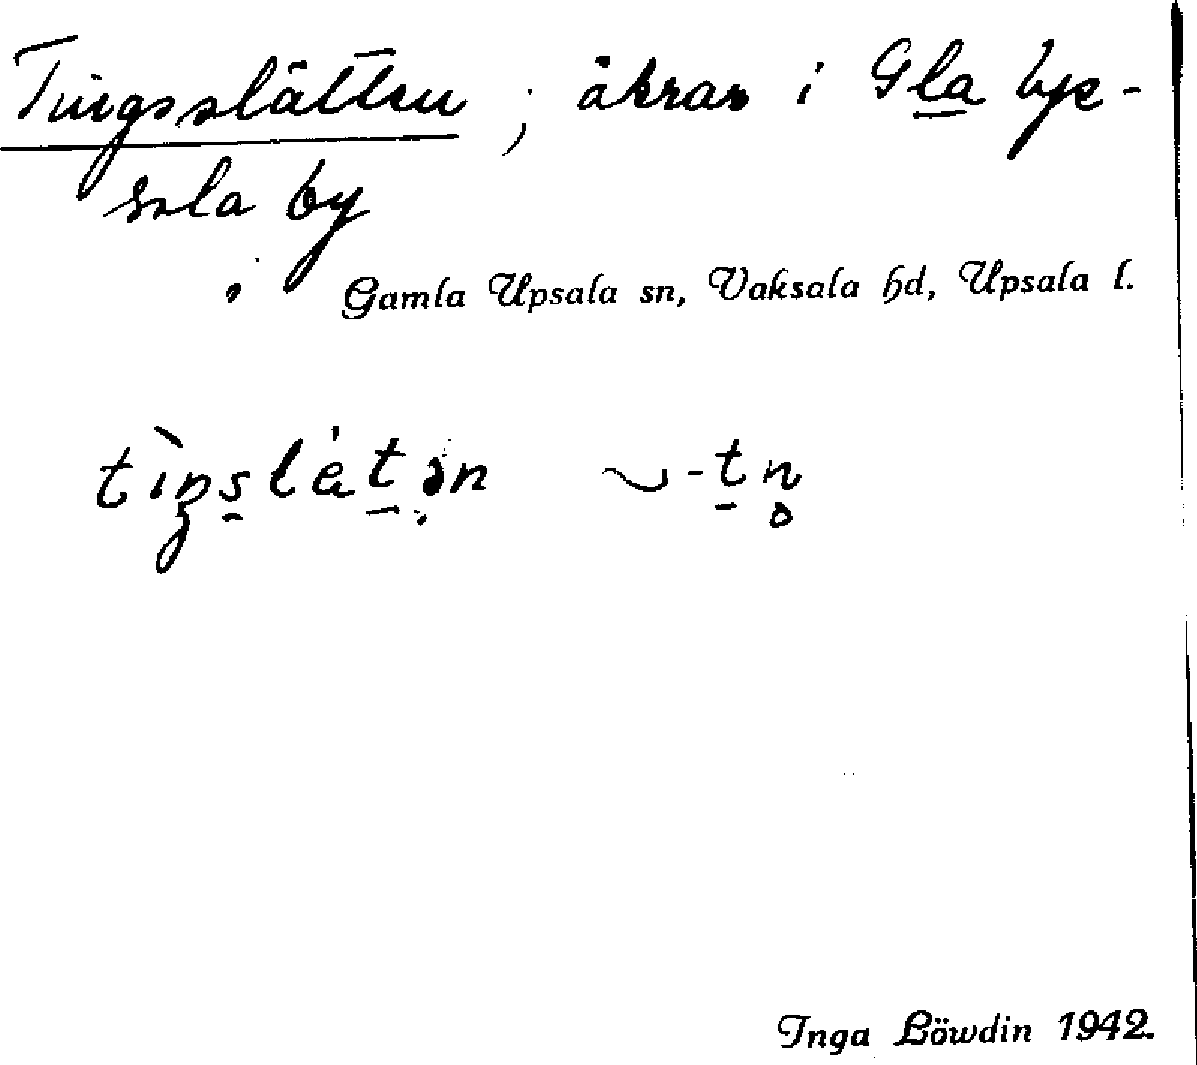 Tingsslätten ; åkrar i Gla Up-
sala by
Gamla Upsala sn, Vaksala hd, Upsala l.
tìŋslátən ~ -tn̥
Inga Löwdin 1942.